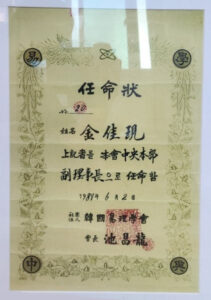 易 學
任命狀
姓名 金佳現
上記者는 本會中央本部
副理事長으로 任命함
6月2日
社團法人 韓國易理學會
會長 池昌龍
中 興